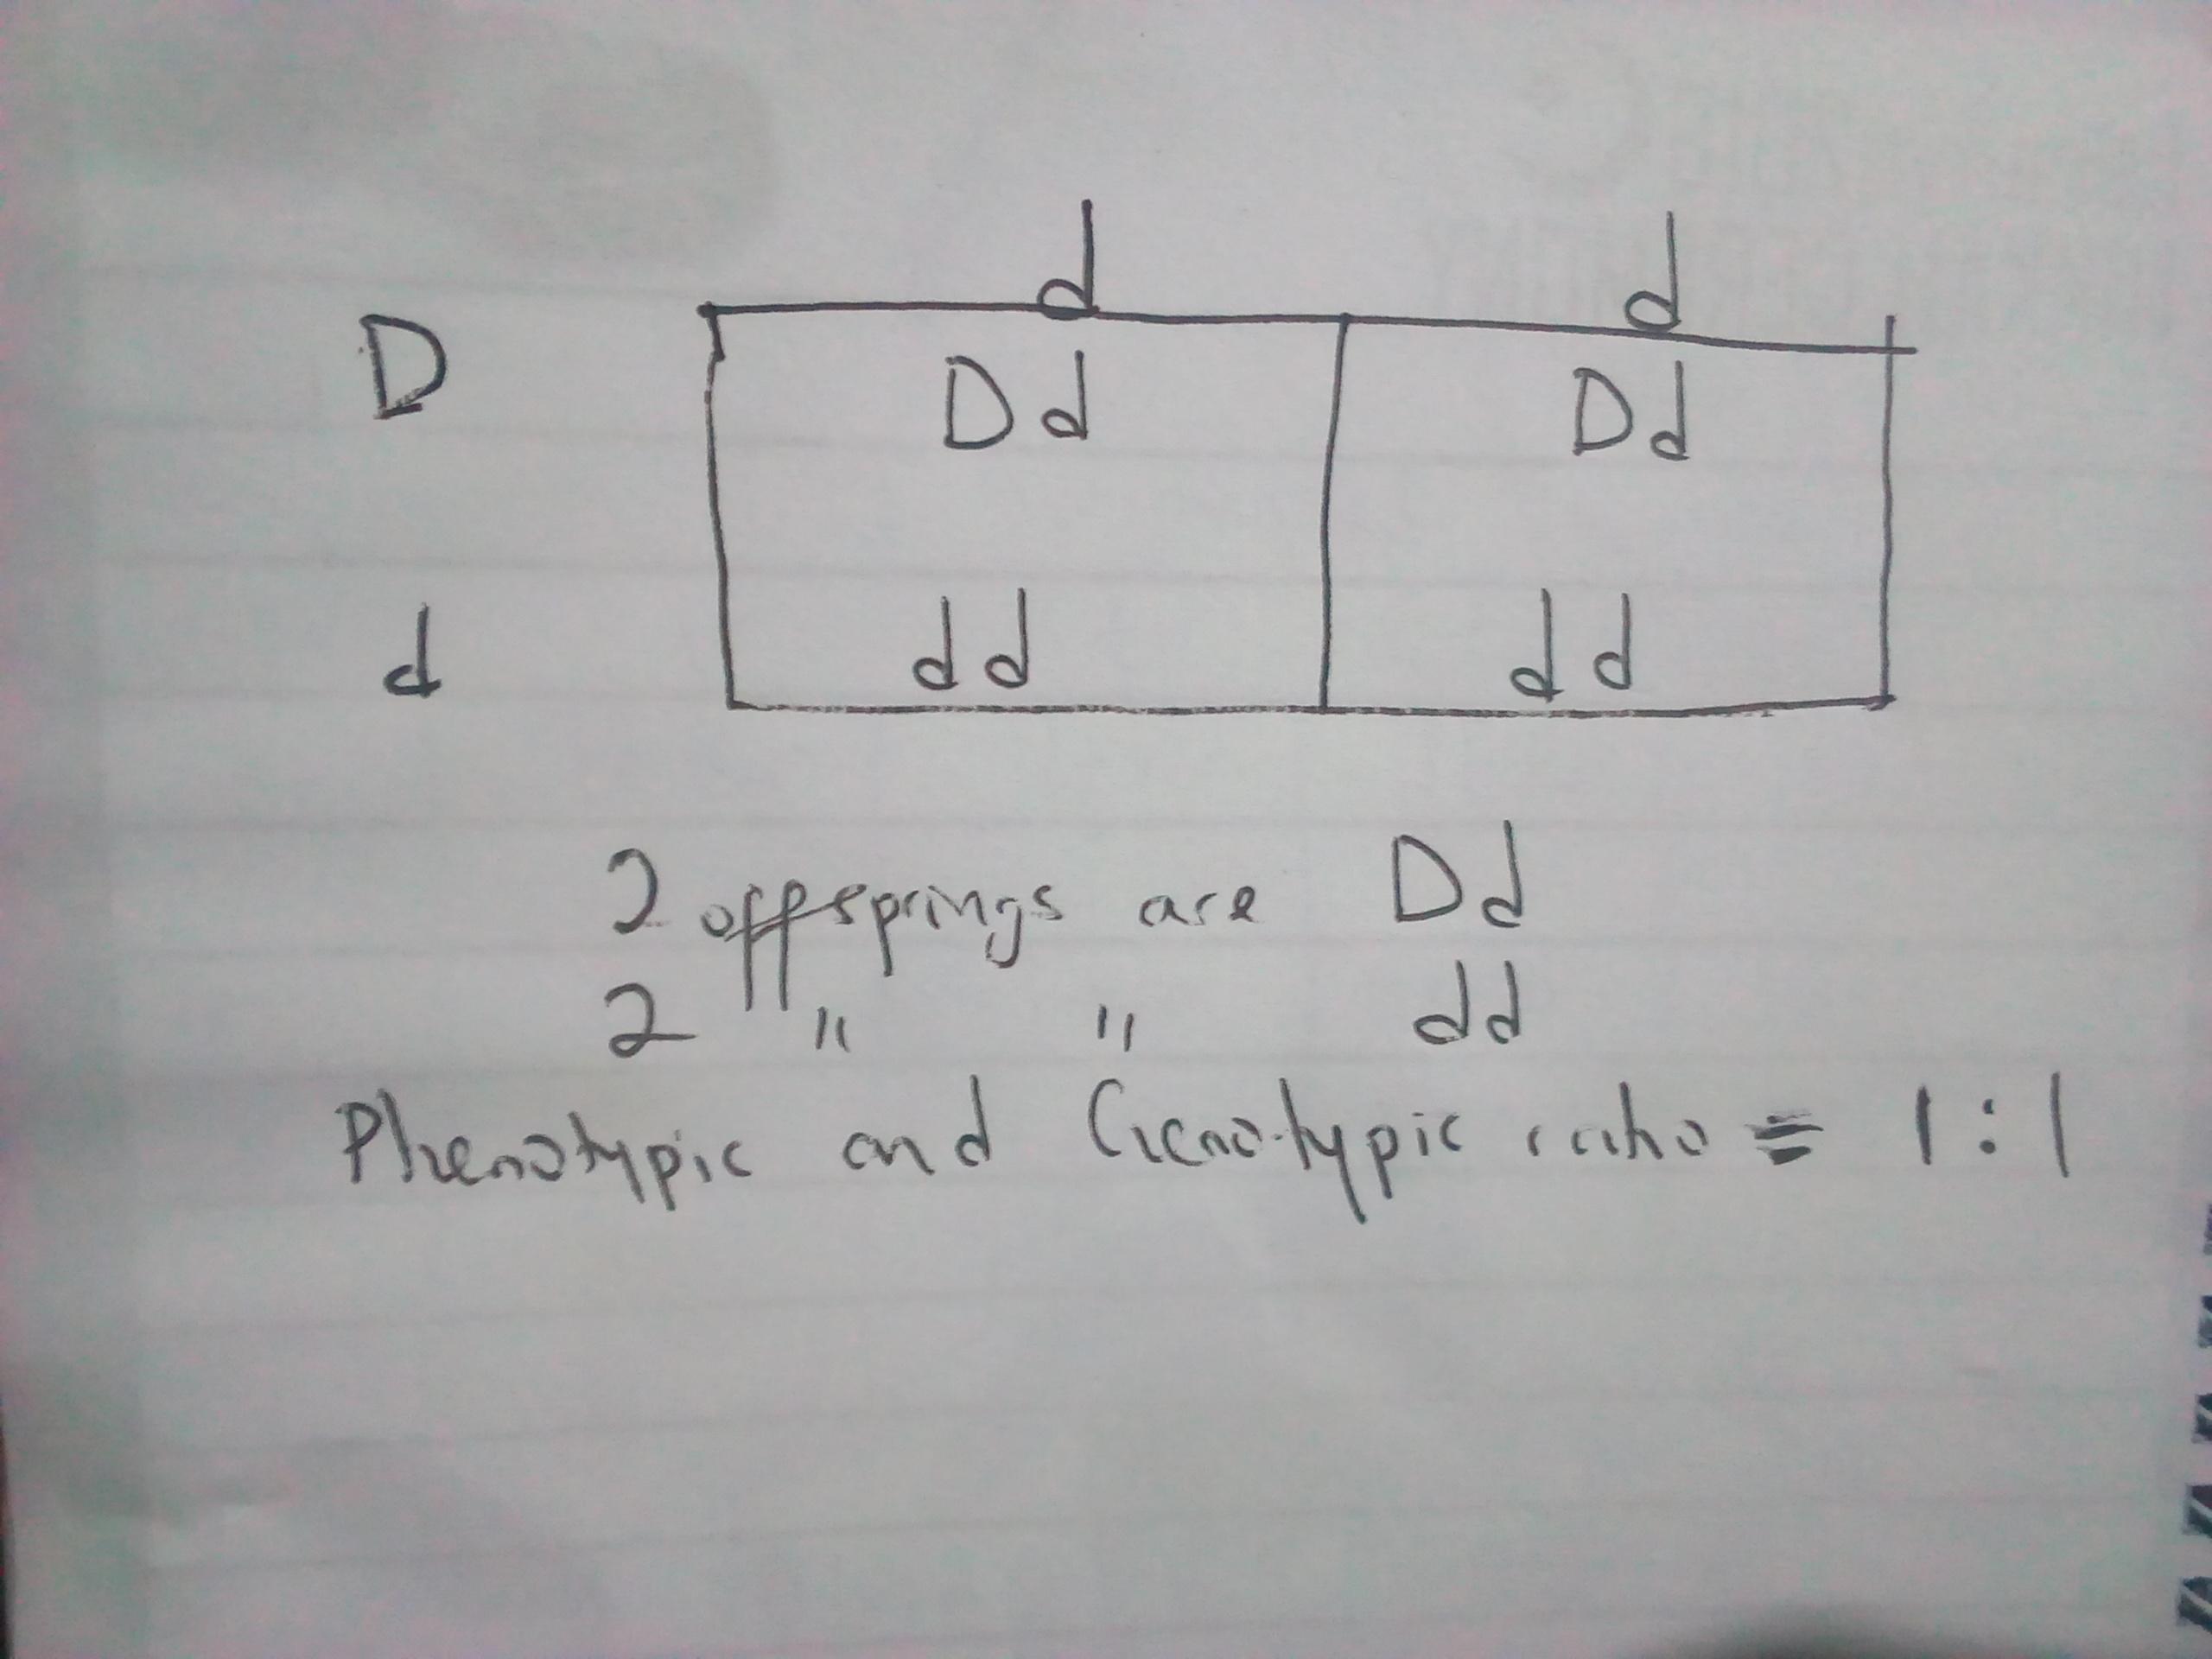 d d
D Dd Dd
d dd dd
2 offsprings are Dd
2 " " dd
Phenotypic and Genotypic ratio = 1:1